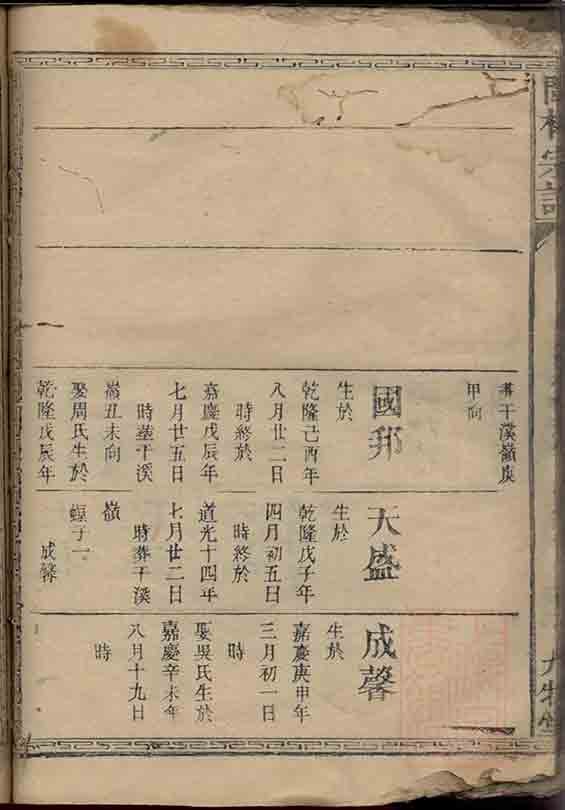 宗譜
葬干溪嶺庚
甲向
國邦
生於
乾隆己酉年
八月廿二日
時終於
嘉慶戊辰年
七月廿五日
時墓干溪
嶺丑未向
娶周氏生於
乾隆戊辰年
天盛
生於
乾隆戊子年
四月初五日
時終於
道光十四年
七月廿二日
時葬干溪
嶺
子一
成馨
成馨
生於
嘉慶庚申年
三月初一日
時
娶吳氏生於
嘉慶辛未年
八月十九日
時